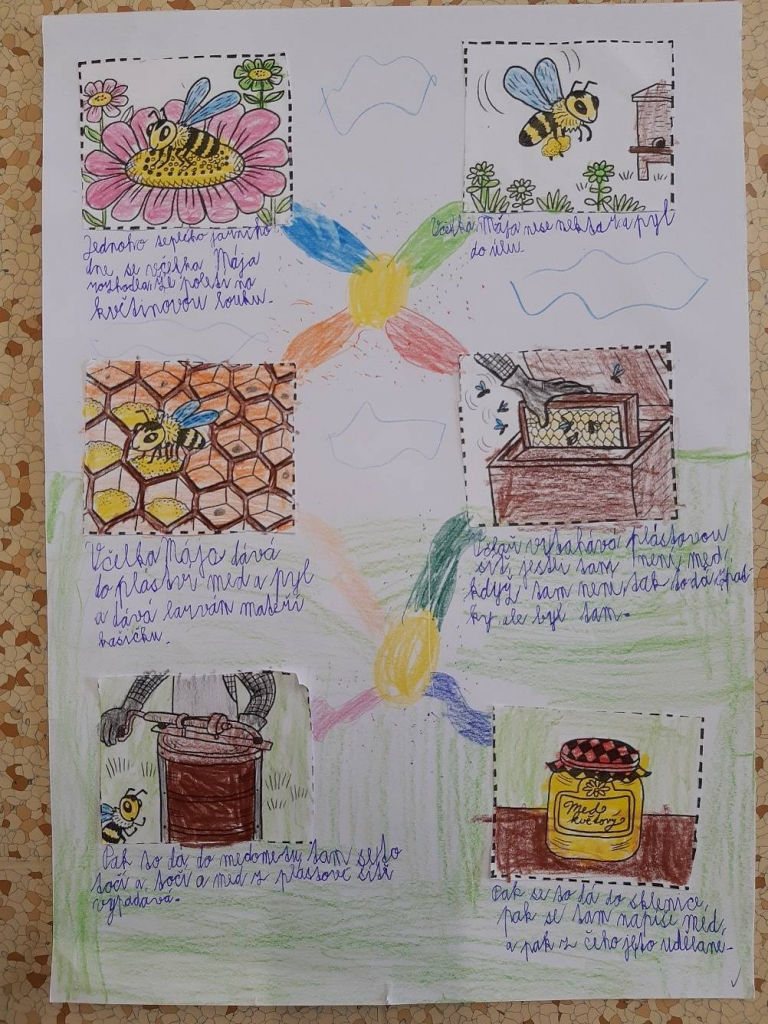 Jednoho teplého jarního
dne se včelka Mája
rozhodla, že poletí na
květinovou louku.
Včelka Mája nese nektar a pyl
do úlu.
Včelka Mája dává
do plástve med a pyl
a dává larvám mateří
kašičku.
Včelař vytahává plástovou
síť, jestli tam není med,
když tam není, tak to dá zpát
ky ale byl tam.
Pak to dá do medometu, tam se to
točí a točí a med z plástové sítě
vypadává.
Med
květový
Pak se to dá do sklenice,
pak se tam napíše med,
a pak z čeho je to udělané.